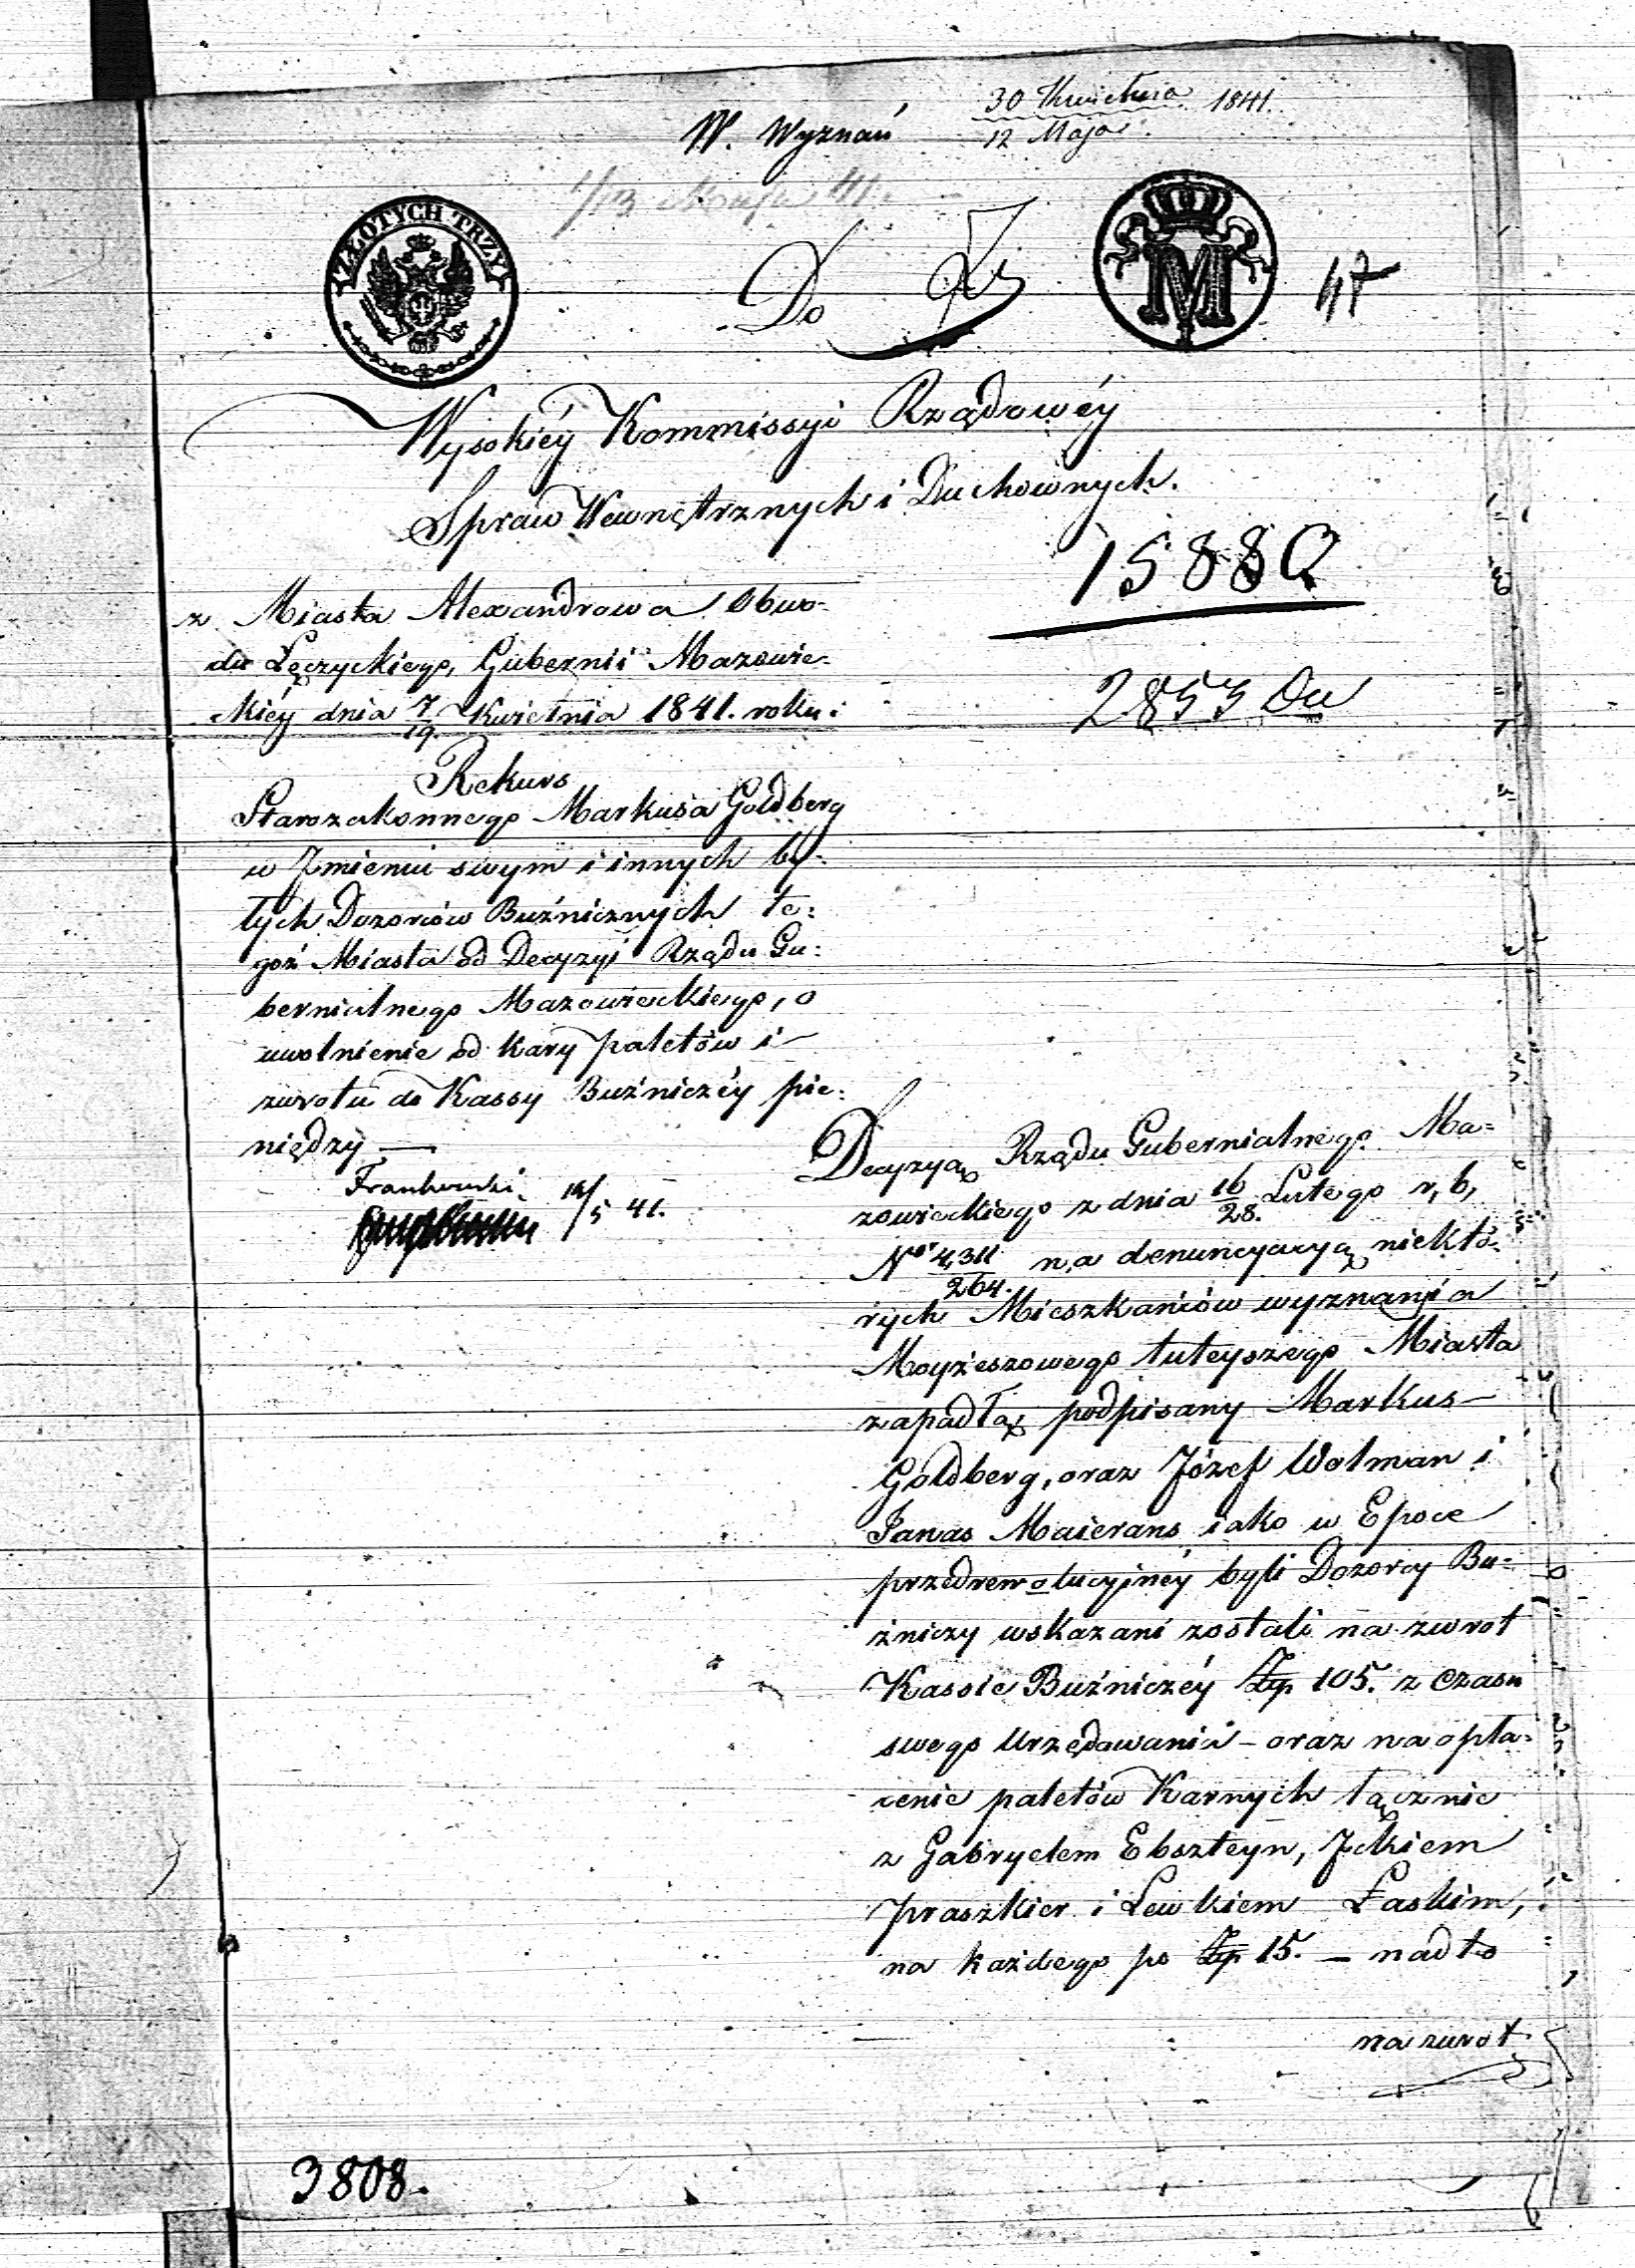 W. Wyznań
30 Kwietnia 1841.
12 Maja
1/13 Maja 41.
ZŁOTYCH TRZY
M
47
Do
Wysokiéy Kommissyi Rządowéy
Spraw Wewnętrznych i Duchownych.
15880
2853
z Miasta Alexandrowa Obwo-
du Łęczyckiego, Gubernii Mazowie-
ckiéy dnia 7/19 Kwietnia 1841. roku:
Rekurs
Starozakonnego Markusa Goldberg
w Jmieniu swym i innych by-
łych Dozorców Buźnicznych te-
goż Miasta od Decyzyi Rządu Gu-
bernialnego Mazowieckiego, o
uwolnienie od kary paletów i
zwrotu do Kassy Buźniczéy pie-
niędzy —
Frankowski
14/5 41.
Decyzyą Rządu Gubernialnego Ma-
zowieckiego z dnia 16/28. Lutego r, b,
No 4,311/264. na denuncyacyą niektó-
rych Mieszkańców wyznania
Moyżeszowego tuteyszego Miasta
zapadłą podpisany Markus
Goldberg, oraz Józef Wolman i
Janas Maierans iako w Epoce
przedrewolucyjnéy byli Dozorcy Bu-
źniczy wskazani zostali na zwrot
Kassie Buźniczéy Złp 105. z czasu
swego Urzędowania – oraz na opła-
cenie paletów Karnych łącznie
z Gabryelem Ebszteyn, Jckiem
Praszkier i Lewkiem Łaskim,
na każdego po Złp 15. – nadto
na zwrot
3808.